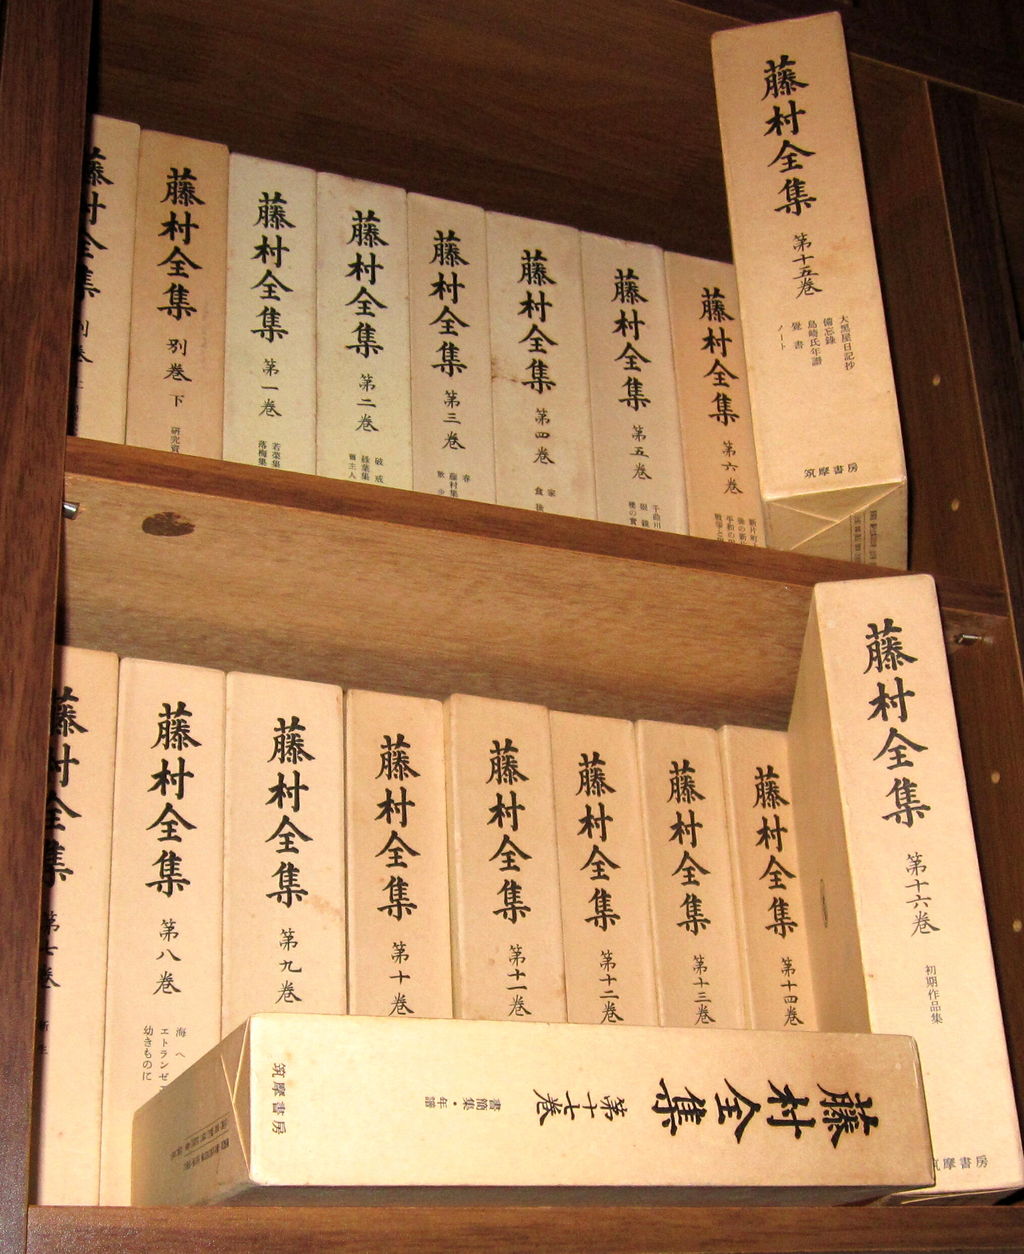 藤村全集 別巻
藤村全集 別巻 下
藤村全集 第一巻 若菜集
落梅集
藤村全集 第二巻 破戒
緑葉集
藤村全集 第三巻 春
藤村集
藤村全集 第四巻 家
食後
藤村全集 第五巻 千曲川
眼鏡
藤村全集 第六巻
藤村全集 第十五巻 大黒屋日記抄
備忘錄
島崎氏年譜
覺書
ノート
筑摩書房
藤村全集 第七巻 新生
藤村全集 第八巻 海へ
エトランゼ
幼きものに
藤村全集 第九巻
藤村全集 第十巻
藤村全集 第十一巻
藤村全集 第十二巻
藤村全集 第十三巻
藤村全集 第十四巻
藤村全集 第十六巻 初期作品集
筑摩書房
藤村全集 第十七巻 書簡集・年譜
筑摩書房